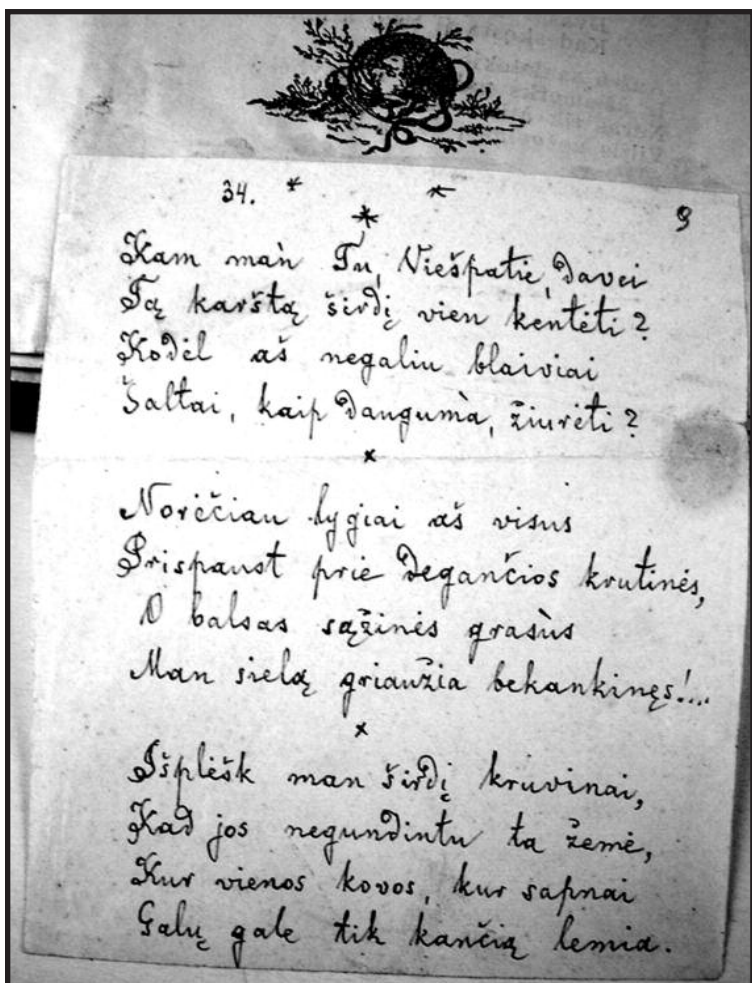 34. * * 9
*
Kam man Tu, Viešpatie, davei
Tą karštą širdį vien kentėti?
Kodėl aš negaliu blaiviai
Šaltai, kaip dangumà, žiurėti?
×
Norėčiau lygiai aš visus
Prispaust prie degančios krutinės,
O balsas sąžinės grasùs
Man sielą griaužia bekankinęs!...
×
Išplėšk man širdį kruvinai,
Kad jos negundintu ta žemė,
Kur vienos kovos, kur sapnai
Galų gale tik kančią lemia.